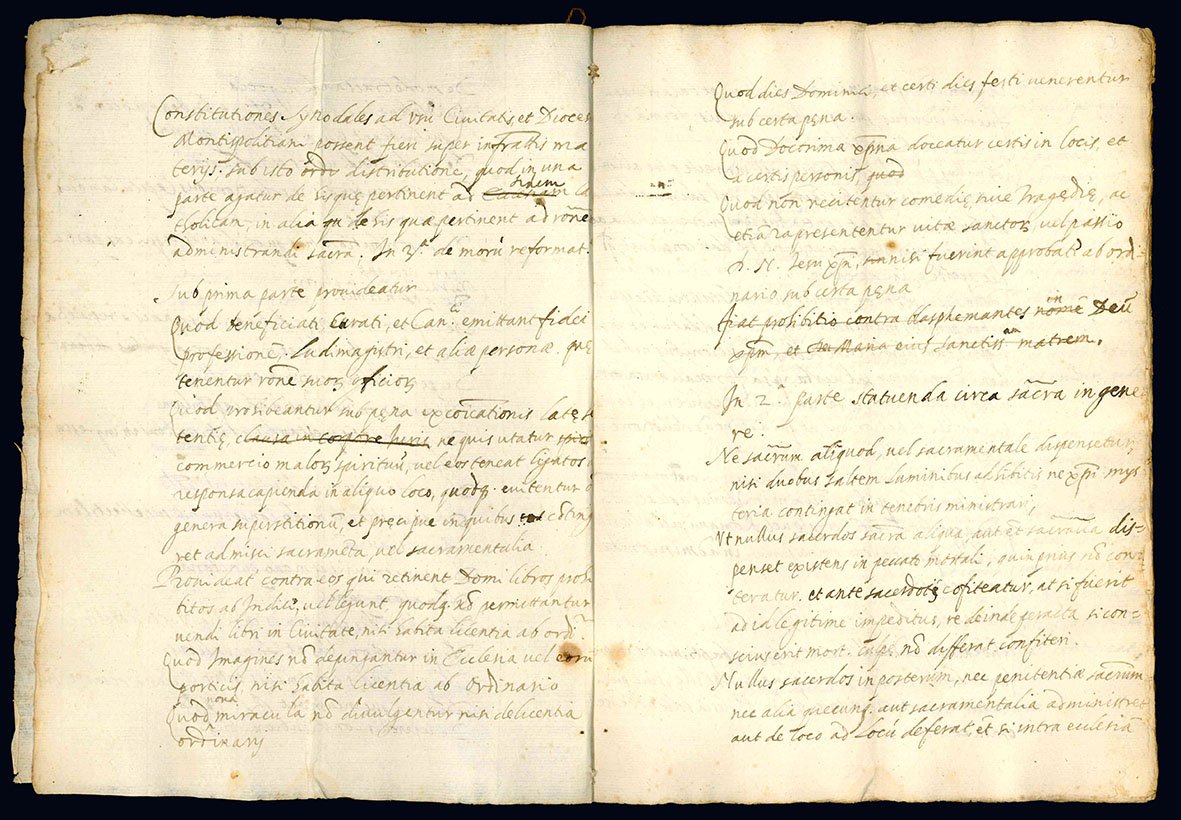 Constitutiones Synodales ad usū Civitatis et Dioces
Montispolitiani possent fieri super infratis ma
terijs sub isto ordē distributione, quod in una
parte agatur de hisque pertinent ad fidem ca
tholicam, in alia de his quæ pertinent ad rōne
administrandi sacrā. In 3ª de morū reformat.
sub prima parte provideatur
Quod beneficiati Curati, et Can.ci emittant fidei
professionē, Ludimagistri, et aliæ personæ quę
tenentur rōne suoꝝ officioꝝ
Quod prohibeantur sub pęna excōicationis latę sē
tentię, clausa in corpore Juris ne quis utatur
commercio maloꝝ spirituū, vel eos teneat ligatos
responsa capienda in aliquo loco, quodꝗ evitentur
genera superstitionū, et precipue in quibus cōting
ret admisci sacramēta, vel sacramentalia.
Provideat contra eos qui retinent Domi libros prohi
titos ab Indice, vel legunt, quodꝗ nō permittantur
vendi libri in Civitate, nisi habita licentia ab ord.
Quod Imagines nō depingantur in Ecclesia vel eoru
porticis, nisi habita licentia ab Ordinario
Quod nova miracula nō divulgentur nisi de licentia
ordinarij
Quod dies Dominici, et certi dies festi venerentur
sub certa pęna.
Quod Doctrina xp̄na doceatur certis in locis, et
a certis personis, quod
Quod non recitentur comedię, sive Tragędię, ac
etiā rapresententur vitæ sanctoꝝ, vel passio
D. N. Iesu xp̄i, nisi fuerint approbati ab ordi-
nario sub certa pęna
fiat prohibitio contra blasphemantes nomē in Deū
xp̄um, et Maria eius sanctiss.am matrem.
In 2.ª parte statuenda circa sacrā in gene
re.
Ne sacrūm aliquod, vel sacramentale dispensetur,
nisi duobus saltem luminibus adhibitis ne xp̄i mys
teria contingat in tenebris ministrari,
Ut nullus sacerdos sacrā aliqua, aut et sacrālia dis=
penset existens in peccato mortali, quin prius nō
teratur, et ante sacerdotē cōfiteatur, at si fuerit
ad id legitime impeditus, re deinde peracta si con=
scius erit mort. culpę, nō differat confiteri.
Nullus sacerdos in posterum, nec penitentiæ sacrūm
nec alia quecunꝗ aut sacramentalia administret
aut de loco ad locū deferat, et si intra ecclesiā